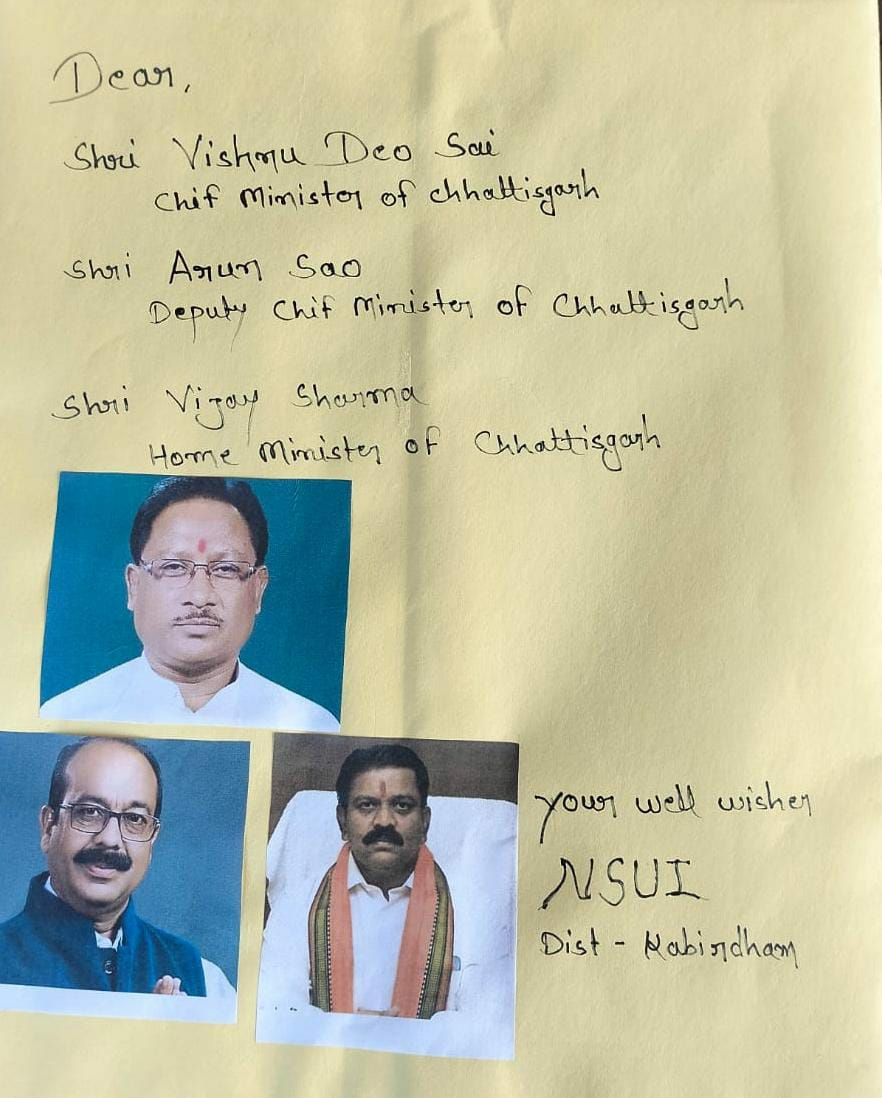 Dear,
Shri Vishnu Deo Sai
Chif Minister of Chhattisgarh
Shri Arun Sao
Deputy Chif Minister of Chhattisgarh
Shri Vijay Sharma
Home Minister of Chhattisgarh
your well wisher
NSUI
Dist - Kabirdham